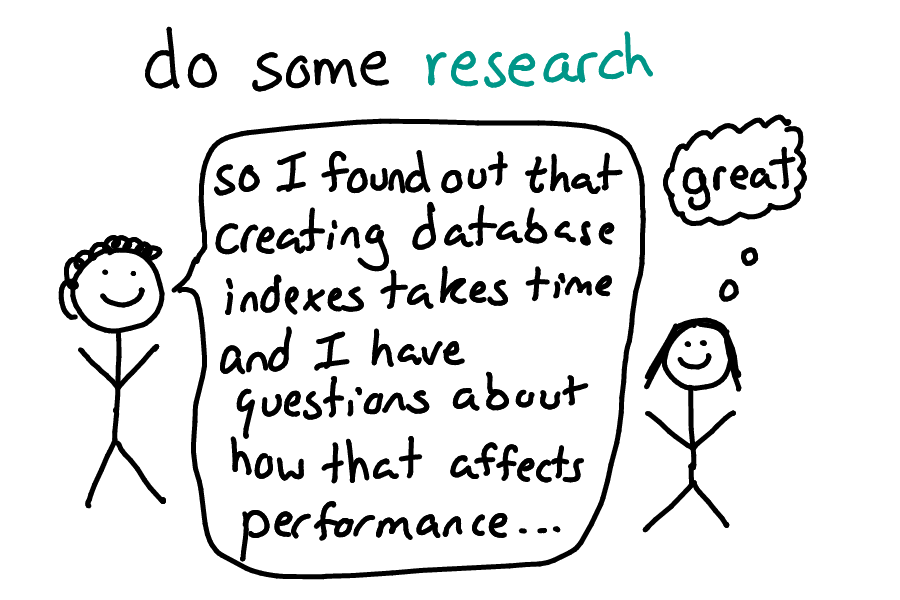 do some research
so I found out that
creating database
indexes takes time
and I have
questions about
how that affects
performance...
great